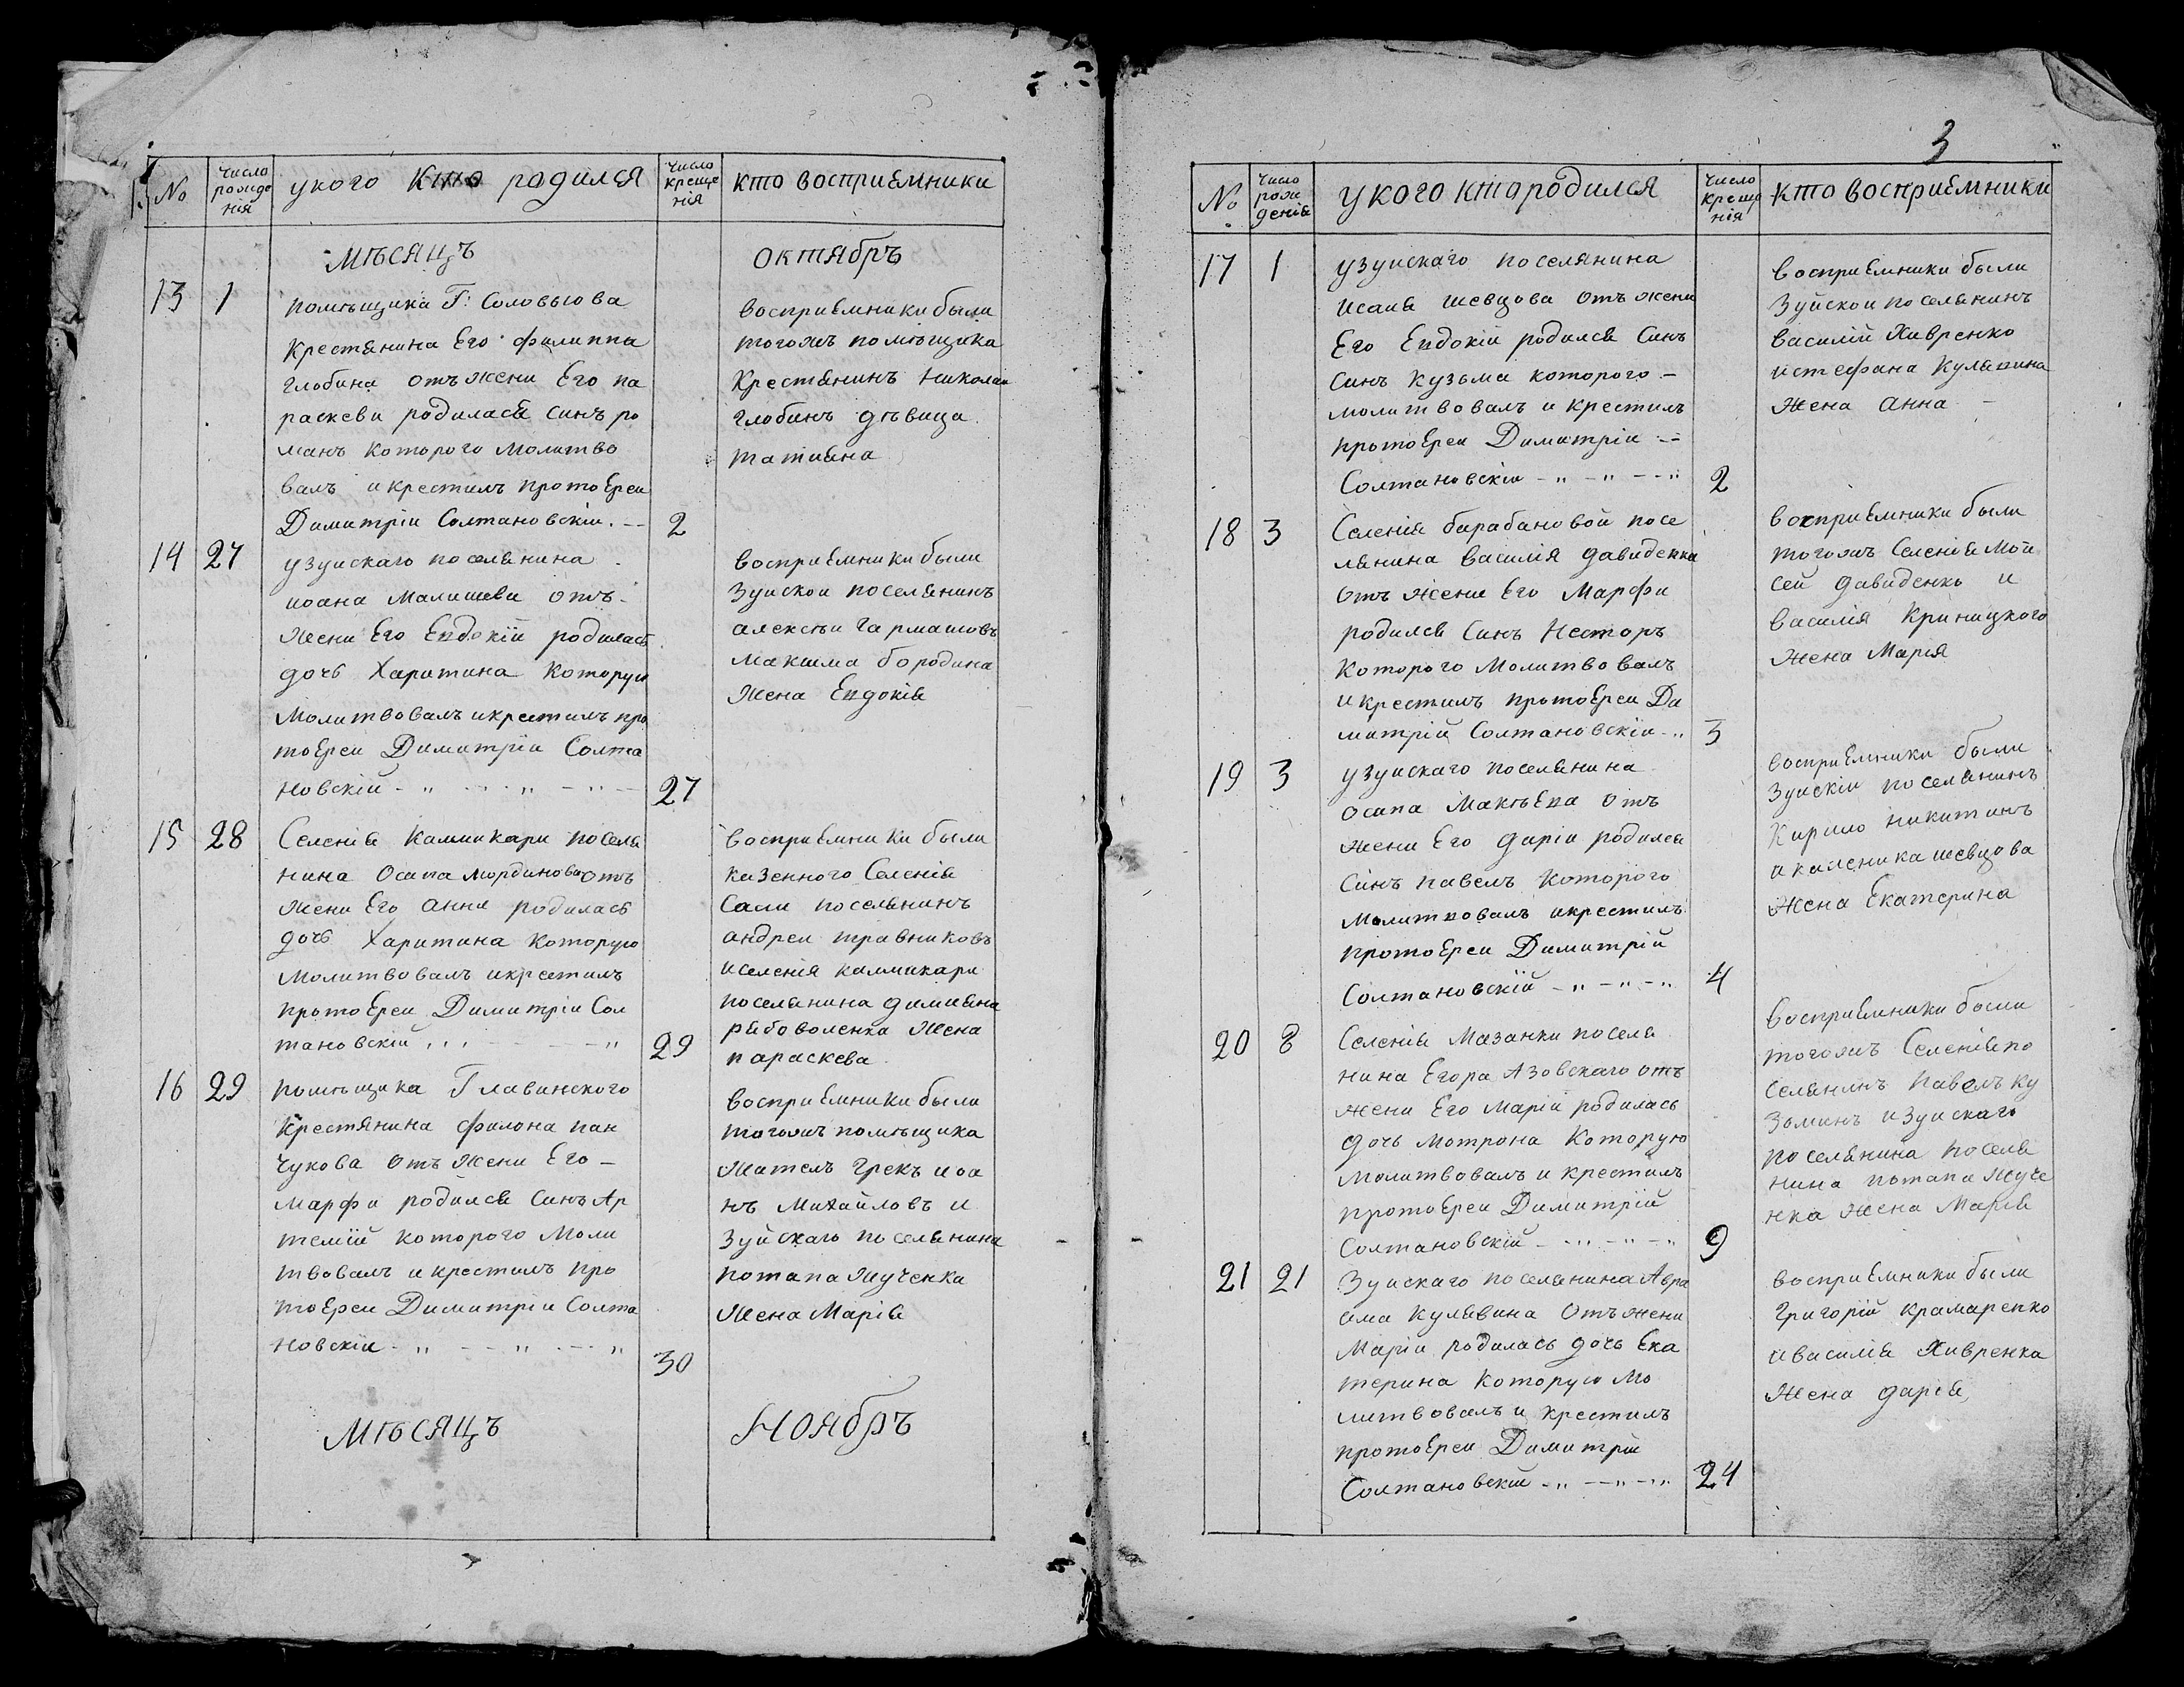 No
Число рожде нія
укого кто родился
Число креще нія
кто восприемники
мѣсяцъ
октябръ
13
1
помѣщика Г: Соловьюва
крестянина Его филиппа
глобина отъ жени Его па
раскеви родилася синъ ро
манъ которого молитво
валъ и крестилъ протоЕреи
Димитріи Солтановскіи. -
2
восприемники были
тогожъ помѣщика
Крестянинъ николаи
глобинъ дѣвица
татияна
14
27
узуискаго поселянина
иоана Малишеви отъ-
жени Его Евдокіи родилась
дочъ Харитина которую
молитвовалъ икрестилъ про
тоЕреи Димитріи Солта
новскій - " - " - " -
27
восприемники были
Зуискои поселянинъ
алексѣи гармашовъ
максима бородина
жена Евдокія
15
28
Селенія Камишкари поселя
нина Осипа мординова отъ
жени Его анни родилась
дочъ Харитина которую
молитвовалъ икрестилъ
протоЕреи Димитріи Сол
тановскій , , , - - "
29
восприемники были
казенного Селенія
Сали поселянинъ
андреи травниковъ
иселенія камишкари
поселянина димияна
рябоволенка жена
параскева
16
29
помѣщика Главинского
Крестянина филона пан
чукова отъ жени Его -
марфи родился синъ Ар
темій которого моли
твовалъ и крестилъ про
тоЕреи Димитріи Солта
новскіи - " - - " - - "
30
восприемники были
тогожъ помѣщика
жителъ грекъ иоа
нъ михайловъ и
Зуйскаго поселянина
потапа жученка
жена Марія
мѣсяцъ
Ноябръ
3
No
Число рож денія
укого кто родился
Число креще нія
кто восприемники
17
1
узуискаго поселянина
исаия шевцова отъ жени
Его Евдокіи родился Синъ
синъ кузьма которого -
молитвовалъ и крестилъ
протоЕреи Димитріи -
Солтановскіи - " - " - - "
2
восприемники были
Зуйскои поселянинъ
василій Хивренко
истефана Кулявина
жена анна -
18
3
Селенія барабановой посе
лянина василія давиденка
отъ жени Его Марфи
родился Синъ Несторъ
которого молитвовалъ
икрестилъ протоЕреи Ди
митріи Солтановскіи - "
3
восприемники были
тогожъ Селенія Мои
сеи давиденко и
василія криницкого
жена Марія
19
3
узуискаго поселянина
осипа макѣева отъ
жени Его даріи родился
синъ павелъ которого
молитвовалъ икрестилъ
протоЕреи Димитрій
Солтановскій - " - " - "
4
восприемники были
Зуискіи поселянинъ
Кирило никитинъ
и шевцова
жена Екатерина
20
8
Селенія Мазанки поселя
нина Егора Азовскаго отъ
жени Его маріи родилась
дочъ мотрона которую
молитвовалъ и крестилъ
протоЕреи Димитрій
Солтановскій - " - " - "
9
восприемники были
тогожъ Селенія по
селянинъ павелъ ку
зминъ изуискаго
поселянина поселя
нина потапа жуче
нка жена Марія
21
21
Зуискаго поселянина Авра
ама кулявина отъ жени
маріи родилась дочъ Ека
терина которую мо
литвовалъ и крестилъ
протоЕреи Димитрій
Солтановскій - " - - " - "
24
восприемники были
григорій крамаренко
ивасилія Хивренка
жена дарія